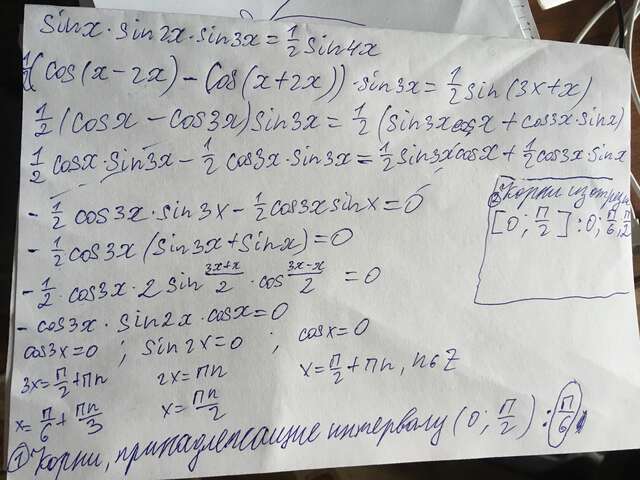 sinx · sin2x · sin3x = 1/2 sin4x
1/2(cos(x-2x) - cos(x+2x)) · sin3x = 1/2 sin(3x+x)
1/2 (cosx - cos3x) sin3x = 1/2 (sin3x cosx + cos3x · sinx)
1/2 cosx · sin3x - 1/2 cos3x · sin3x = 1/2 sin3x cosx + 1/2 cos3x · sinx
- 1/2 cos3x · sin3x - 1/2 cos3x sinx = 0
- 1/2 cos3x (sin3x + sinx) = 0
- 1/2 · cos3x · 2 sin (3x+x)/2 · cos (3x-x)/2 = 0
- cos3x · sin2x · cosx = 0
cos3x = 0 ; sin2x = 0 ; cosx = 0
3x = π/2 + πn 2x = πn x = π/2 + πn, n∈Z
x = π/6 + πn/3 x = πn/2
① Корни, принадлежащие интервалу (0; π/2) : π/6
② Корни из
[0; π/2] : 0; π/6; π/2